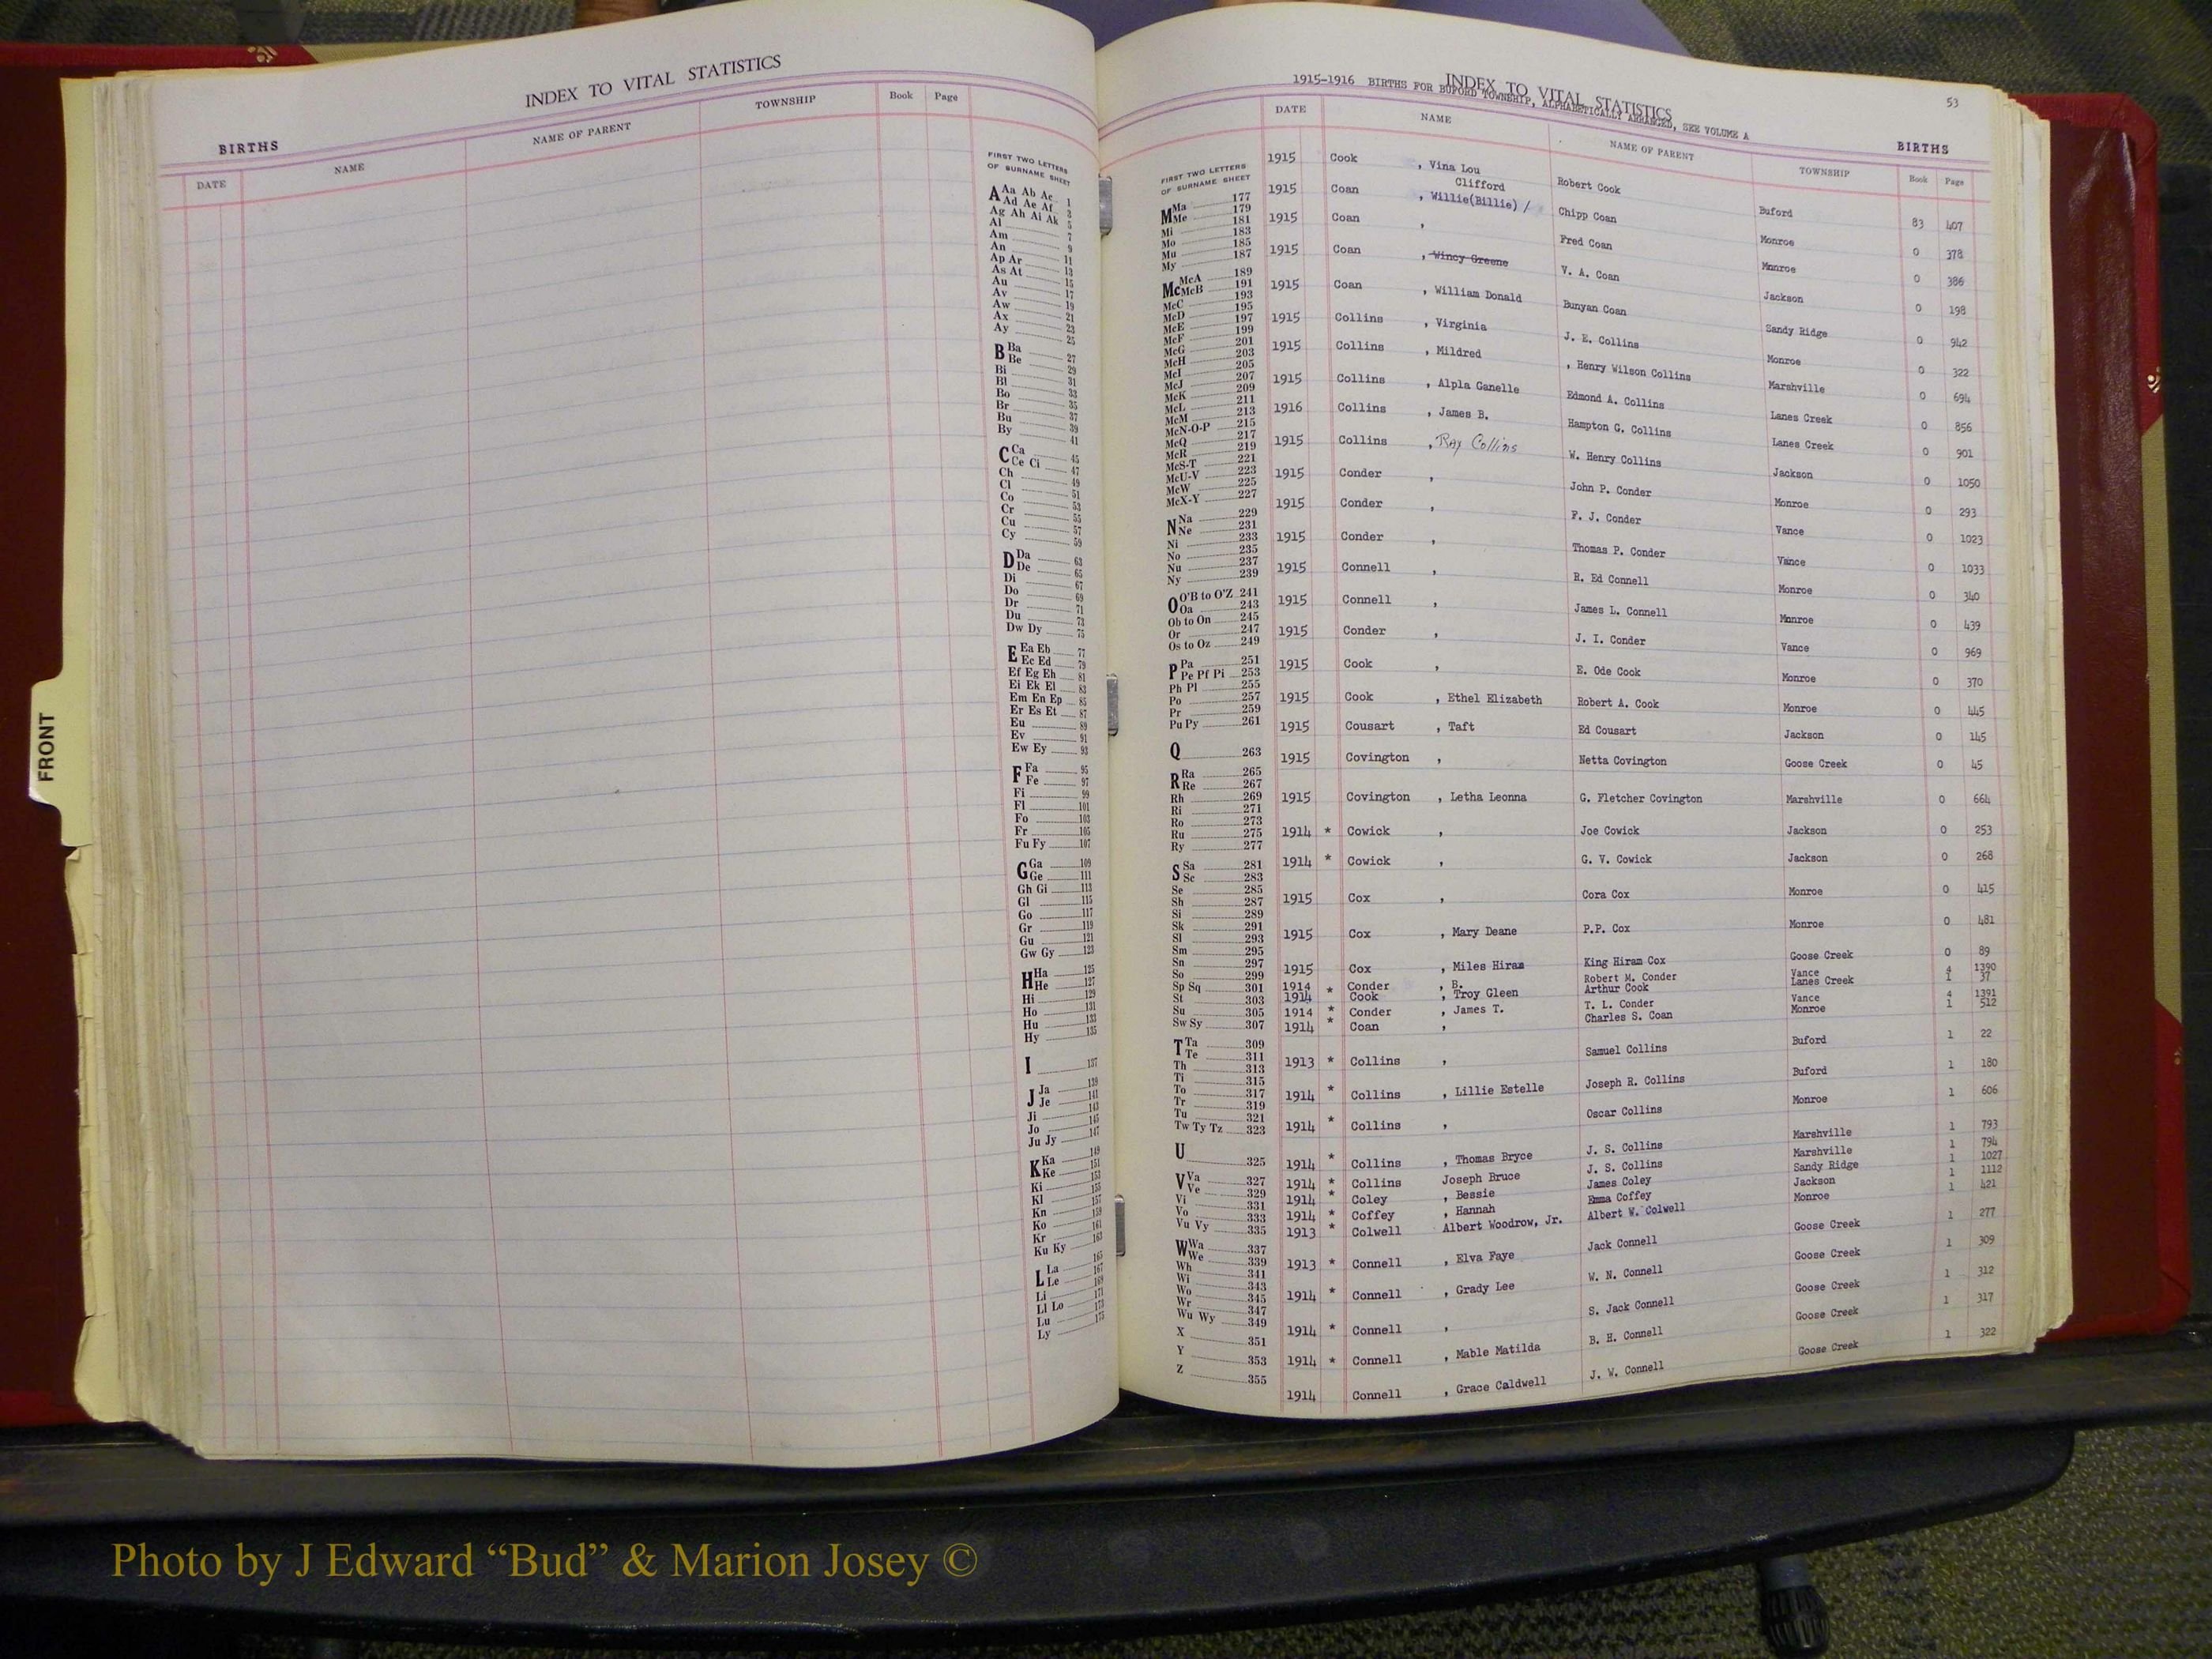 INDEX TO VITAL STATISTICS
BIRTHS
DATE NAME NAME OF PARENT TOWNSHIP Book Page
FIRST TWO LETTERS
OF SURNAME SHEET
A Aa Ab Ac 1
Ad Ae Af 3
Ag Ah Ai Ak 5
Al 7
Am 9
An 11
Ap Ar 13
As At 15
Au 17
Av 19
Aw 21
Ax 23
Ay 25
B Ba 27
Be 29
Bi 31
Bl 33
Bo 35
Br 37
Bu 39
By 41
C Ca 45
Ce Ci 47
Ch 49
Cl 51
Co 53
Cr 55
Cu 57
Cy 59
D Da 63
De 65
Di 67
Do 69
Dr 71
Du 73
Dw Dy 75
E Ea Eb 77
Ec Ed 79
Ef Eg Eh 81
Ei Ek El 83
Em En Ep 85
Er Es Et 87
Eu 89
Ev 91
Ew Ey 93
F Fa 95
Fe 97
Fi 99
Fl 101
Fo 103
Fr 105
Fu Fy 107
G Ga 109
Ge 111
Gh Gi 113
Gl 115
Go 117
Gr 119
Gu 121
Gw Gy 123
H Ha 125
He 127
Hi 129
Ho 131
Hu 133
Hy 135
I 137
J Ja 139
Je 141
Ji 143
Jo 145
Ju Jy 147
K Ka 149
Ke 151
Ki 153
Kl 155
Kn 157
Ko 159
Kr 161
Ku Ky 163
L La 165
Le 167
Li 169
Ll Lo 171
Lu 173
Ly 175
INDEX TO VITAL STATISTICS
1915-1916 BIRTHS FOR BUFORD TOWNSHIP, ALPHABETICALLY ARRANGED, SEE VOLUME A
53
BIRTHS
DATE NAME NAME OF PARENT TOWNSHIP Book Page
FIRST TWO LETTERS
OF SURNAME SHEET
M Ma 177
Me 179
Mi 181
Mo 183
Mu 185
My 187
Mc McA 189
McB 191
McC 193
McD 195
McE 197
McF 199
McG 201
McH 203
McI 205
McJ 207
McK 209
McL 211
McM 213
McN-O-P 215
McQ 217
McR 219
McS-T 221
McU-V 223
McW 225
McX-Y 227
N Na 229
Ne 231
Ni 233
No 235
Nu 237
Ny 239
O O'B to O'Z 241
Oa 243
Ob to On 245
Or 247
Os to Oz 249
P Pa 251
Pe Pf Pi 253
Ph Pl 255
Po 257
Pr 259
Pu Py 261
Q 263
R Ra 265
Re 267
Rh 269
Ri 271
Ro 273
Ru 275
Ry 277
S Sa 281
Sc 283
Se 285
Sh 287
Si 289
Sk 291
Sl 293
Sm 295
Sn 297
So 299
Sp Sq 301
St 303
Su 305
Sw Sy 307
T Ta 309
Te 311
Th 313
Ti 315
To 317
Tr 319
Tu 321
Tw Ty Tz 323
U 325
V Va 327
Ve 329
Vi 331
Vo 333
Vu Vy 335
W Wa 337
We 339
Wh 341
Wi 343
Wo 345
Wr 347
Wu Wy 349
X 351
Y 353
Z 355
1915 Cook , Vina Lou Robert Cook Buford 83 407
Clifford
1915 Coan , Willie(Billie) / Chipp Coan Monroe 0 378
1915 Coan , Fred Coan Monroe 0 386
1915 Coan , Wincy Greene V. A. Coan Jackson 0 198
1915 Coan , William Donald Bunyan Coan Sandy Ridge 0 942
1915 Collins , Virginia J. E. Collins Monroe 0 322
1915 Collins , Mildred , Henry Wilson Collins Marshville 0 694
1915 Collins , Alpla Ganelle Edmond A. Collins Lanes Creek 0 856
1916 Collins , James B. Hampton G. Collins Lanes Creek 0 901
1915 Collins , Ray Collins W. Henry Collins Jackson 0 1050
1915 Conder , John P. Conder Monroe 0 293
1915 Conder , F. J. Conder Vance 0 1023
1915 Conder , Thomas P. Conder Vance 0 1033
1915 Connell , R. Ed Connell Monroe 0 340
1915 Connell , James L. Connell Monroe 0 439
1915 Conder , J. I. Conder Vance 0 969
1915 Cook , E. Ode Cook Monroe 0 370
1915 Cook , Ethel Elizabeth Robert A. Cook Monroe 0 445
1915 Cousart , Taft Ed Cousart Jackson 0 145
1915 Covington , Netta Covington Goose Creek 0 45
1915 Covington , Letha Leonna G. Fletcher Covington Marshville 0 664
1914 * Cowick , Joe Cowick Jackson 0 253
1914 * Cowick , G. V. Cowick Jackson 0 268
1915 Cox , Cora Cox Monroe 0 415
1915 Cox , Mary Deane P.P. Cox Monroe 0 481
1915 Cox , Miles Hiram King Hiram Cox Goose Creek 0 89
1914 Conder , B. Robert M. Conder Vance 4 1390
1914 * Cook , Troy Gleen Arthur Cook Lanes Creek 1 37
1914 * Conder , James T. T. L. Conder Vance 4 1391
1914 * Coan , Charles S. Coan Monroe 1 512
1913 * Collins , Samuel Collins Buford 1 22
1914 * Collins , Lillie Estelle Joseph R. Collins Buford 1 180
1914 * Collins , Oscar Collins Monroe 1 606
1914 * Collins , Thomas Bryce J. S. Collins Marshville 1 793
1914 * Collins Joseph Bruce J. S. Collins Marshville 1 794
1914 * Coley , Bessie James Coley Sandy Ridge 1 1027
1914 * Coffey , Hannah Emma Coffey Jackson 1 1112
1913 * Colwell Albert Woodrow, Jr. Albert W. Colwell Monroe 1 421
1913 * Connell , Elva Faye Jack Connell Goose Creek 1 277
1914 * Connell , Grady Lee W. N. Connell Goose Creek 1 309
1914 * Connell , S. Jack Connell Goose Creek 1 312
1914 * Connell , Mable Matilda B. H. Connell Goose Creek 1 317
1914 Connell , Grace Caldwell J. W. Connell Goose Creek 1 322
FRONT
Photo by J Edward “Bud” & Marion Josey ©